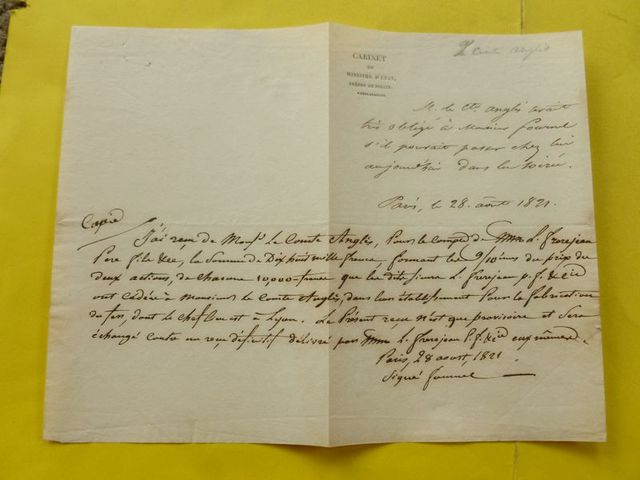 Comte Anglès
CABINET
DU
MINISTRE D'ÉTAT,
PRÉFET DE POLICE.
M. le Cte. Anglès serait
très obligé à Monsieur fournel
s'il pouvait passer chez lui
aujourd'hui dans la soirée.
Paris, le 28. août 1821.
Copie
J'ai reçu de Monsr. Le Comte Anglès, Pour le Compte de MM. L. Frerejean
Pere fils &Cie, la Somme de Dix huit mille francs, formant les 9/10èmes du prix de
deux actions, de chacune 10,000 francs que les dits sieurs L. Frerejean p. f. & Cie
ont cédées à Monsieur le Comte Anglès, dans leur établissement Pour la fabrication
du fer, dont le chef lieu est à Lyon. Le Présent reçu n'est que provisoire et sera
échangé contre un reçu définitif délivré par MM. L. Frerejean P. f. &Cie eux mêmes.
Paris, 28 aoust, 1821
Signé fournel